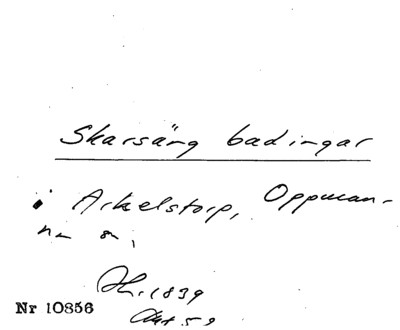 Skarsäng badingar
i Arkelstorp, Oppman-
na sn,
1839
Nr 10856